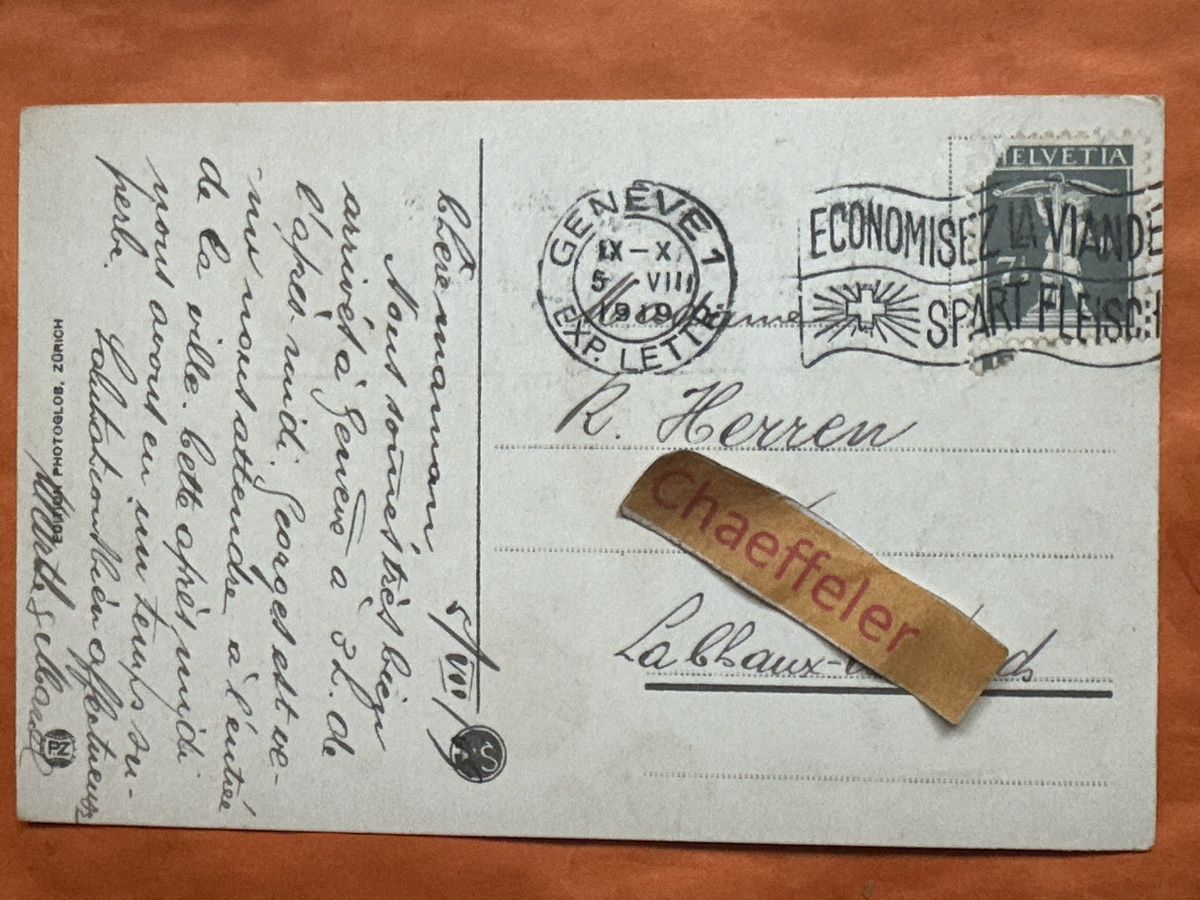 Chère maman 5/VIII/19
Nous somes très bien
arrivés à Genève à 3 h. de
l'après-midi. Georges est ve-
nu nous attendre à l'entrée
de la ville. Cette après midi
nous avons eu un temps su-
perbe.
Salutations bien affectueuses
EDITION PHOTOGLOB, ZÜRICH
PZ
GENÈVE 1
IX-X
5 VIII
1919
EXP. LETTR.
HELVETIA
7½
ECONOMISEZ LA VIANDE
SPART FLEISCH
Madame
R. Herren
Chaeffeler
La Chaux-de-Fonds